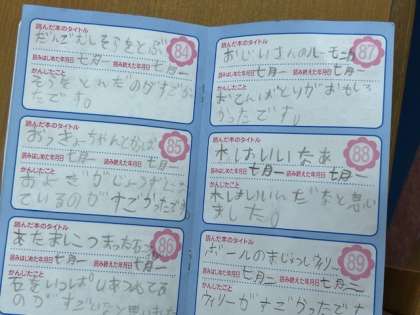 読んだ本のタイトル
だんごむしそらをとぶ
84
読みはじめた年月日 七月一 読み終えた年月日 七月一
かんじたこと
そらをとんだのがすごかっ
たです。
読んだ本のタイトル
おっきょちゃんとかっぱ
85
読みはじめた年月日 七月一 読み終えた年月日 七月一
かんじたこと
およぎがじょうずに
ているのがすごかったです
読んだ本のタイトル
あたまにつまった石ころが
86
読みはじめた年月日 七月一 読み終えた年月日 七月一
かんじたこと
石をいっぱいあつめてる
のがすごいなと思いました
読んだ本のタイトル
おじいさんのハーモニカ
87
読みはじめた年月日 七月一 読み終えた年月日 七月一
かんじたこと
がおもしろ
かったです。
読んだ本のタイトル
木はいいなあ
88
読みはじめた年月日 七月一 読み終えた年月日 七月一
かんじたこと
木はいいんだなと思い
ました。
読んだ本のタイトル
ボールのまじゅつしウィリー
89
読みはじめた年月日 七月二 読み終えた年月日 七月二
かんじたこと
ウィリーがすごかったです